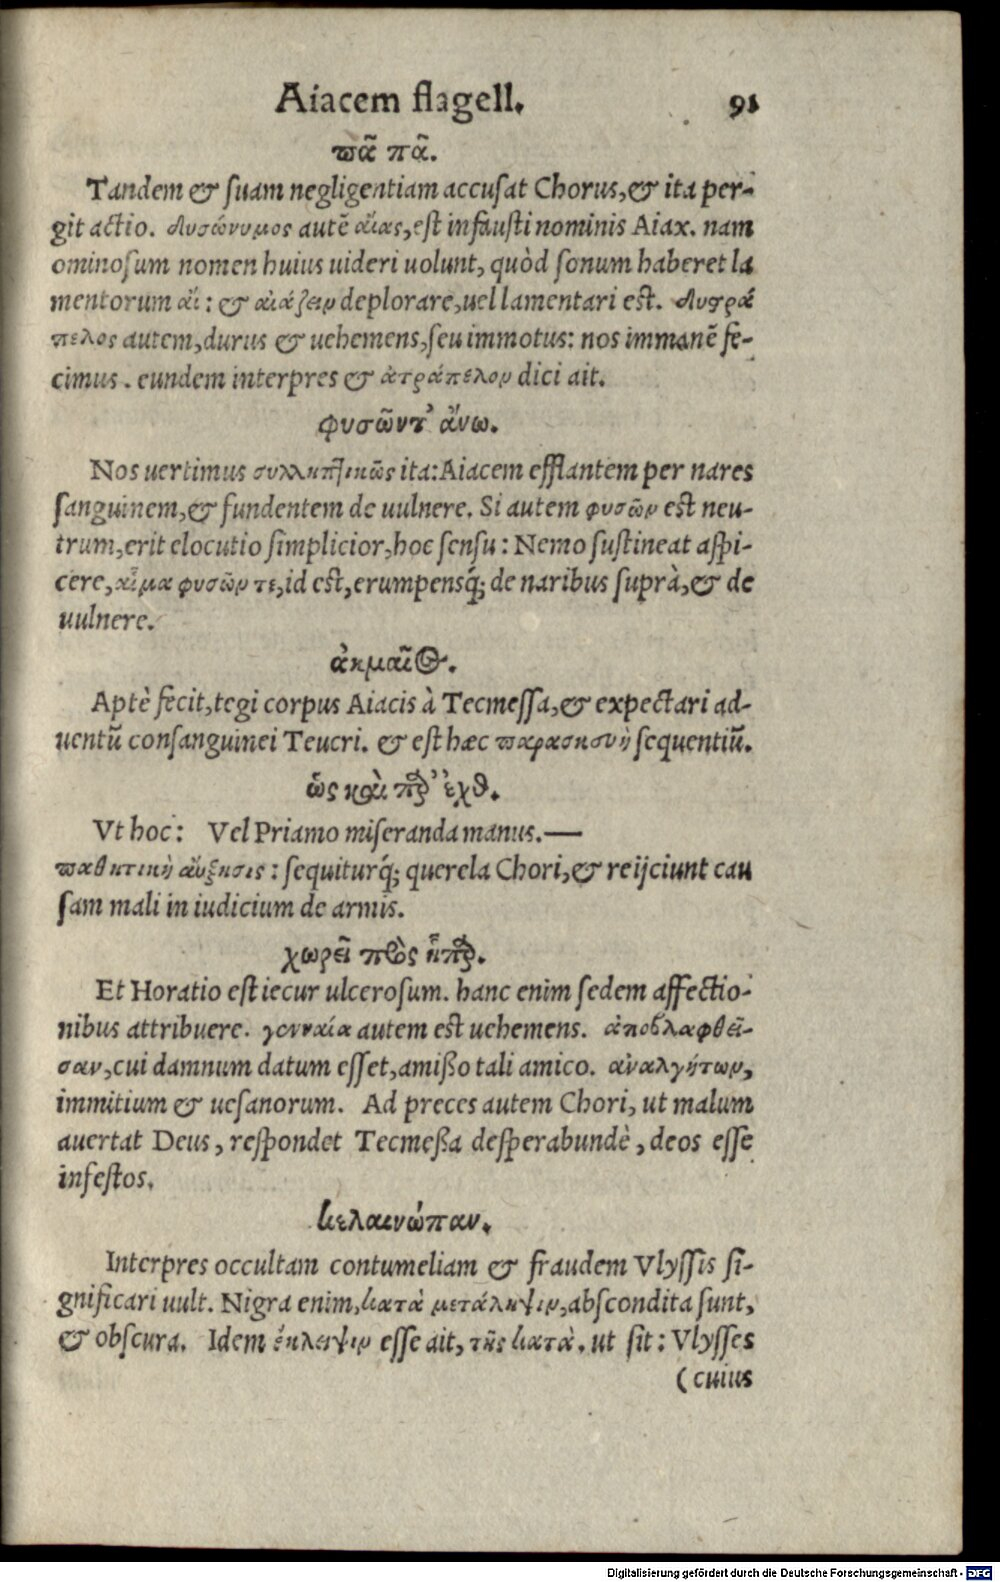 Aiacem flagell. 91
πᾶ πᾶ.
Tandem & suam negligentiam accusat Chorus, & ita per-
git actio. δυσώνυμος autē αἴας, est infausti nominis Aiax. nam
ominosum nomen huius uideri uolunt, quòd sonum haberet la
mentorum αἴ: & αἰάζειν deplorare, uel lamentari est. δυστρά
πελος autem, durus & uehemens, seu immotus: nos immanē fe-
cimus. eundem interpres & ἀτράπελον dici ait.
φυσῶντ' ἄνω.
Nos uertimus συλληπτικῶς ita: Aiacem efflantem per nares
sanguinem, & fundentem de uulnere. Si autem φυσῶν est neu-
trum, erit elocutio simplicior, hoc sensu: Nemo sustineat aspi-
cere, αἷμα φυσῶν τε, id est, erumpensq́; de naribus suprà, & de
uulnere.
ἀκμαῖος.
Aptè fecit, tegi corpus Aiacis à Tecmessa, & expectari ad-
uentū consanguinei Teucri. & est hæc παρασκευὴ sequentiū.
ὡς καὶ παρ' ἐχθ.
Vt hoc: Vel Priamo miseranda manus.—
παθητικὴ αὔξησις: sequiturq́; querela Chori, & reijciunt cau
sam mali in iudicium de armis.
χωρεῖ πρὸς ἧπαρ.
Et Horatio est iecur ulcerosum. hanc enim sedem affectio-
nibus attribuere. γενναία autem est uehemens. ἀποβλαφθεῖ-
σαν, cui damnum datum esset, amißo tali amico. ἀναλγήτων,
immitium & uesanorum. Ad preces autem Chori, ut malum
auertat Deus, respondet Tecmeßa desperabundè, deos esse
infestos.
κελαινώπαν.
Interpres occultam contumeliam & fraudem Vlyssis si-
gnificari uult. Nigra enim, κατὰ μετάληψιν, abscondita sunt,
& obscura. Idem ἔκλειψιν esse ait, τῆς κατὰ. ut sit: Vlysses
(cuius
Digitalisierung gefördert durch die Deutsche Forschungsgemeinschaft - DFG